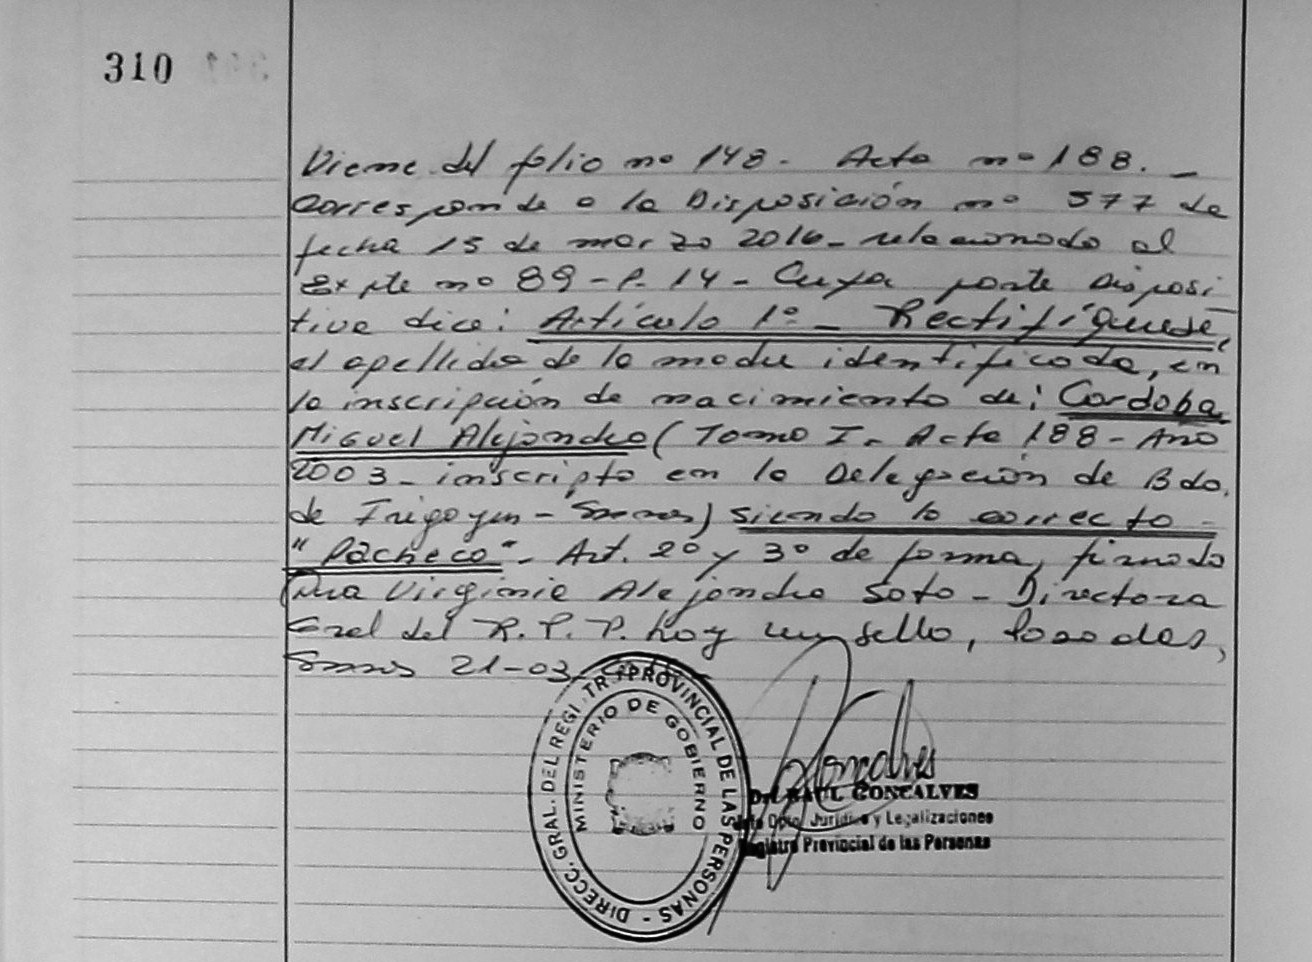 310
Viene del folio nº 148. Acta nº 188. _
Corresponde a la Disposición nº 577 de
fecha 15 de marzo 2016 - relacionado al
Expte nº 89 - P. 14 - Cuya parte Disposi
tiva dice: Artículo 1º - Rectifíquese,
el apellido de la madre identificada, en
la inscripción de nacimiento de: Cordoba,
Miguel Alejandro (Tomo I - Acta 188 - Año
2003 - inscripto en la Delegación de Bdo.
de Irigoyen - Mnes) siendo lo correcto -
"Pacheco" - Art. 2º y 3º de forma, firmado
Virginia Alejandra Soto - Directora
Gral del R. P. P. hoy sello, Posadas,
Mnes 21-03
DIRECC. GRAL. DEL REGISTRO PROVINCIAL DE LAS PERSONAS -
MINISTERIO DE GOBIERNO
Goncalves
Dr. RAUL GONCALVES
Jefe Dpto. Jurídico y Legalizaciones
Registro Provincial de las Personas